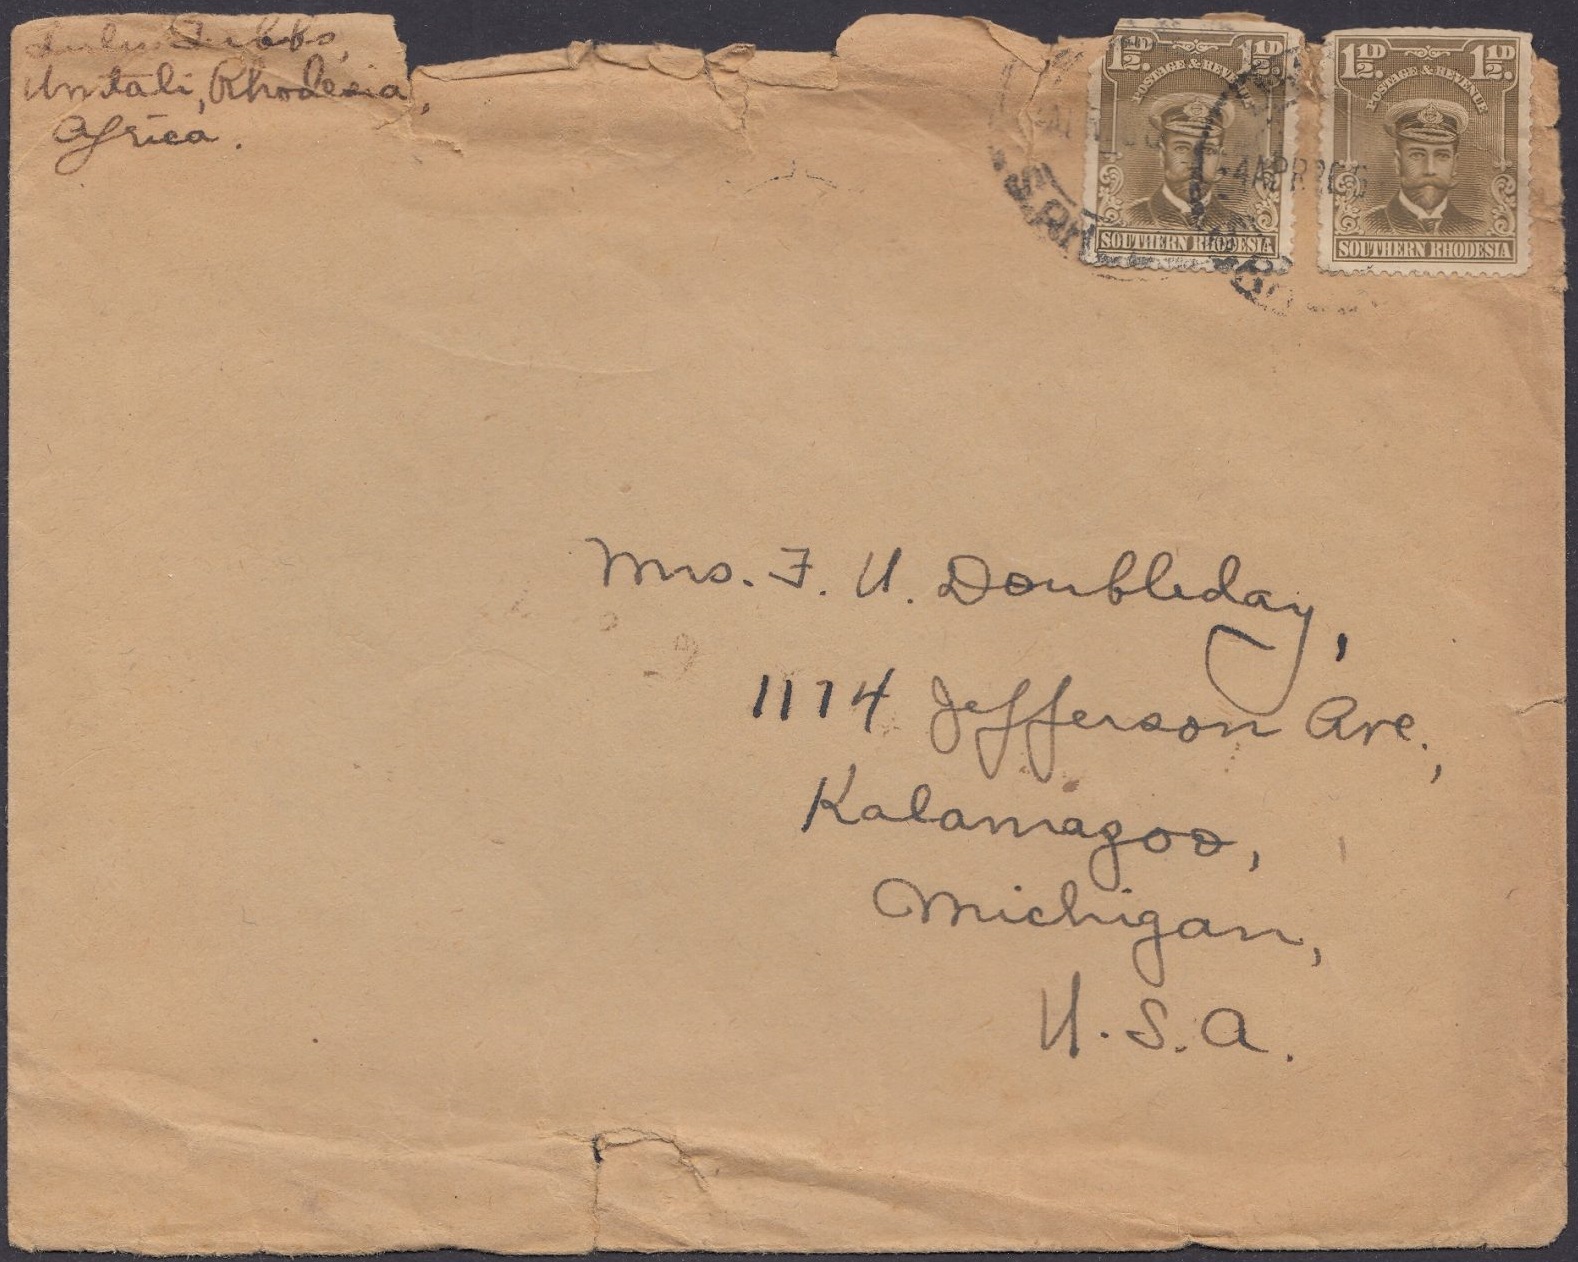 Lulu Tubbs,
Umtali, Rhodesia,
Africa.
1½D. 1½D.
POSTAGE & REVENUE
SOUTHERN RHODESIA
1½D. 1½D.
POSTAGE & REVENUE
SOUTHERN RHODESIA
4 APR 26
S. RHO
Mrs. F. U. Doubleday,
1174 Jefferson Ave.,
Kalamazoo,
Michigan,
U.S.A.